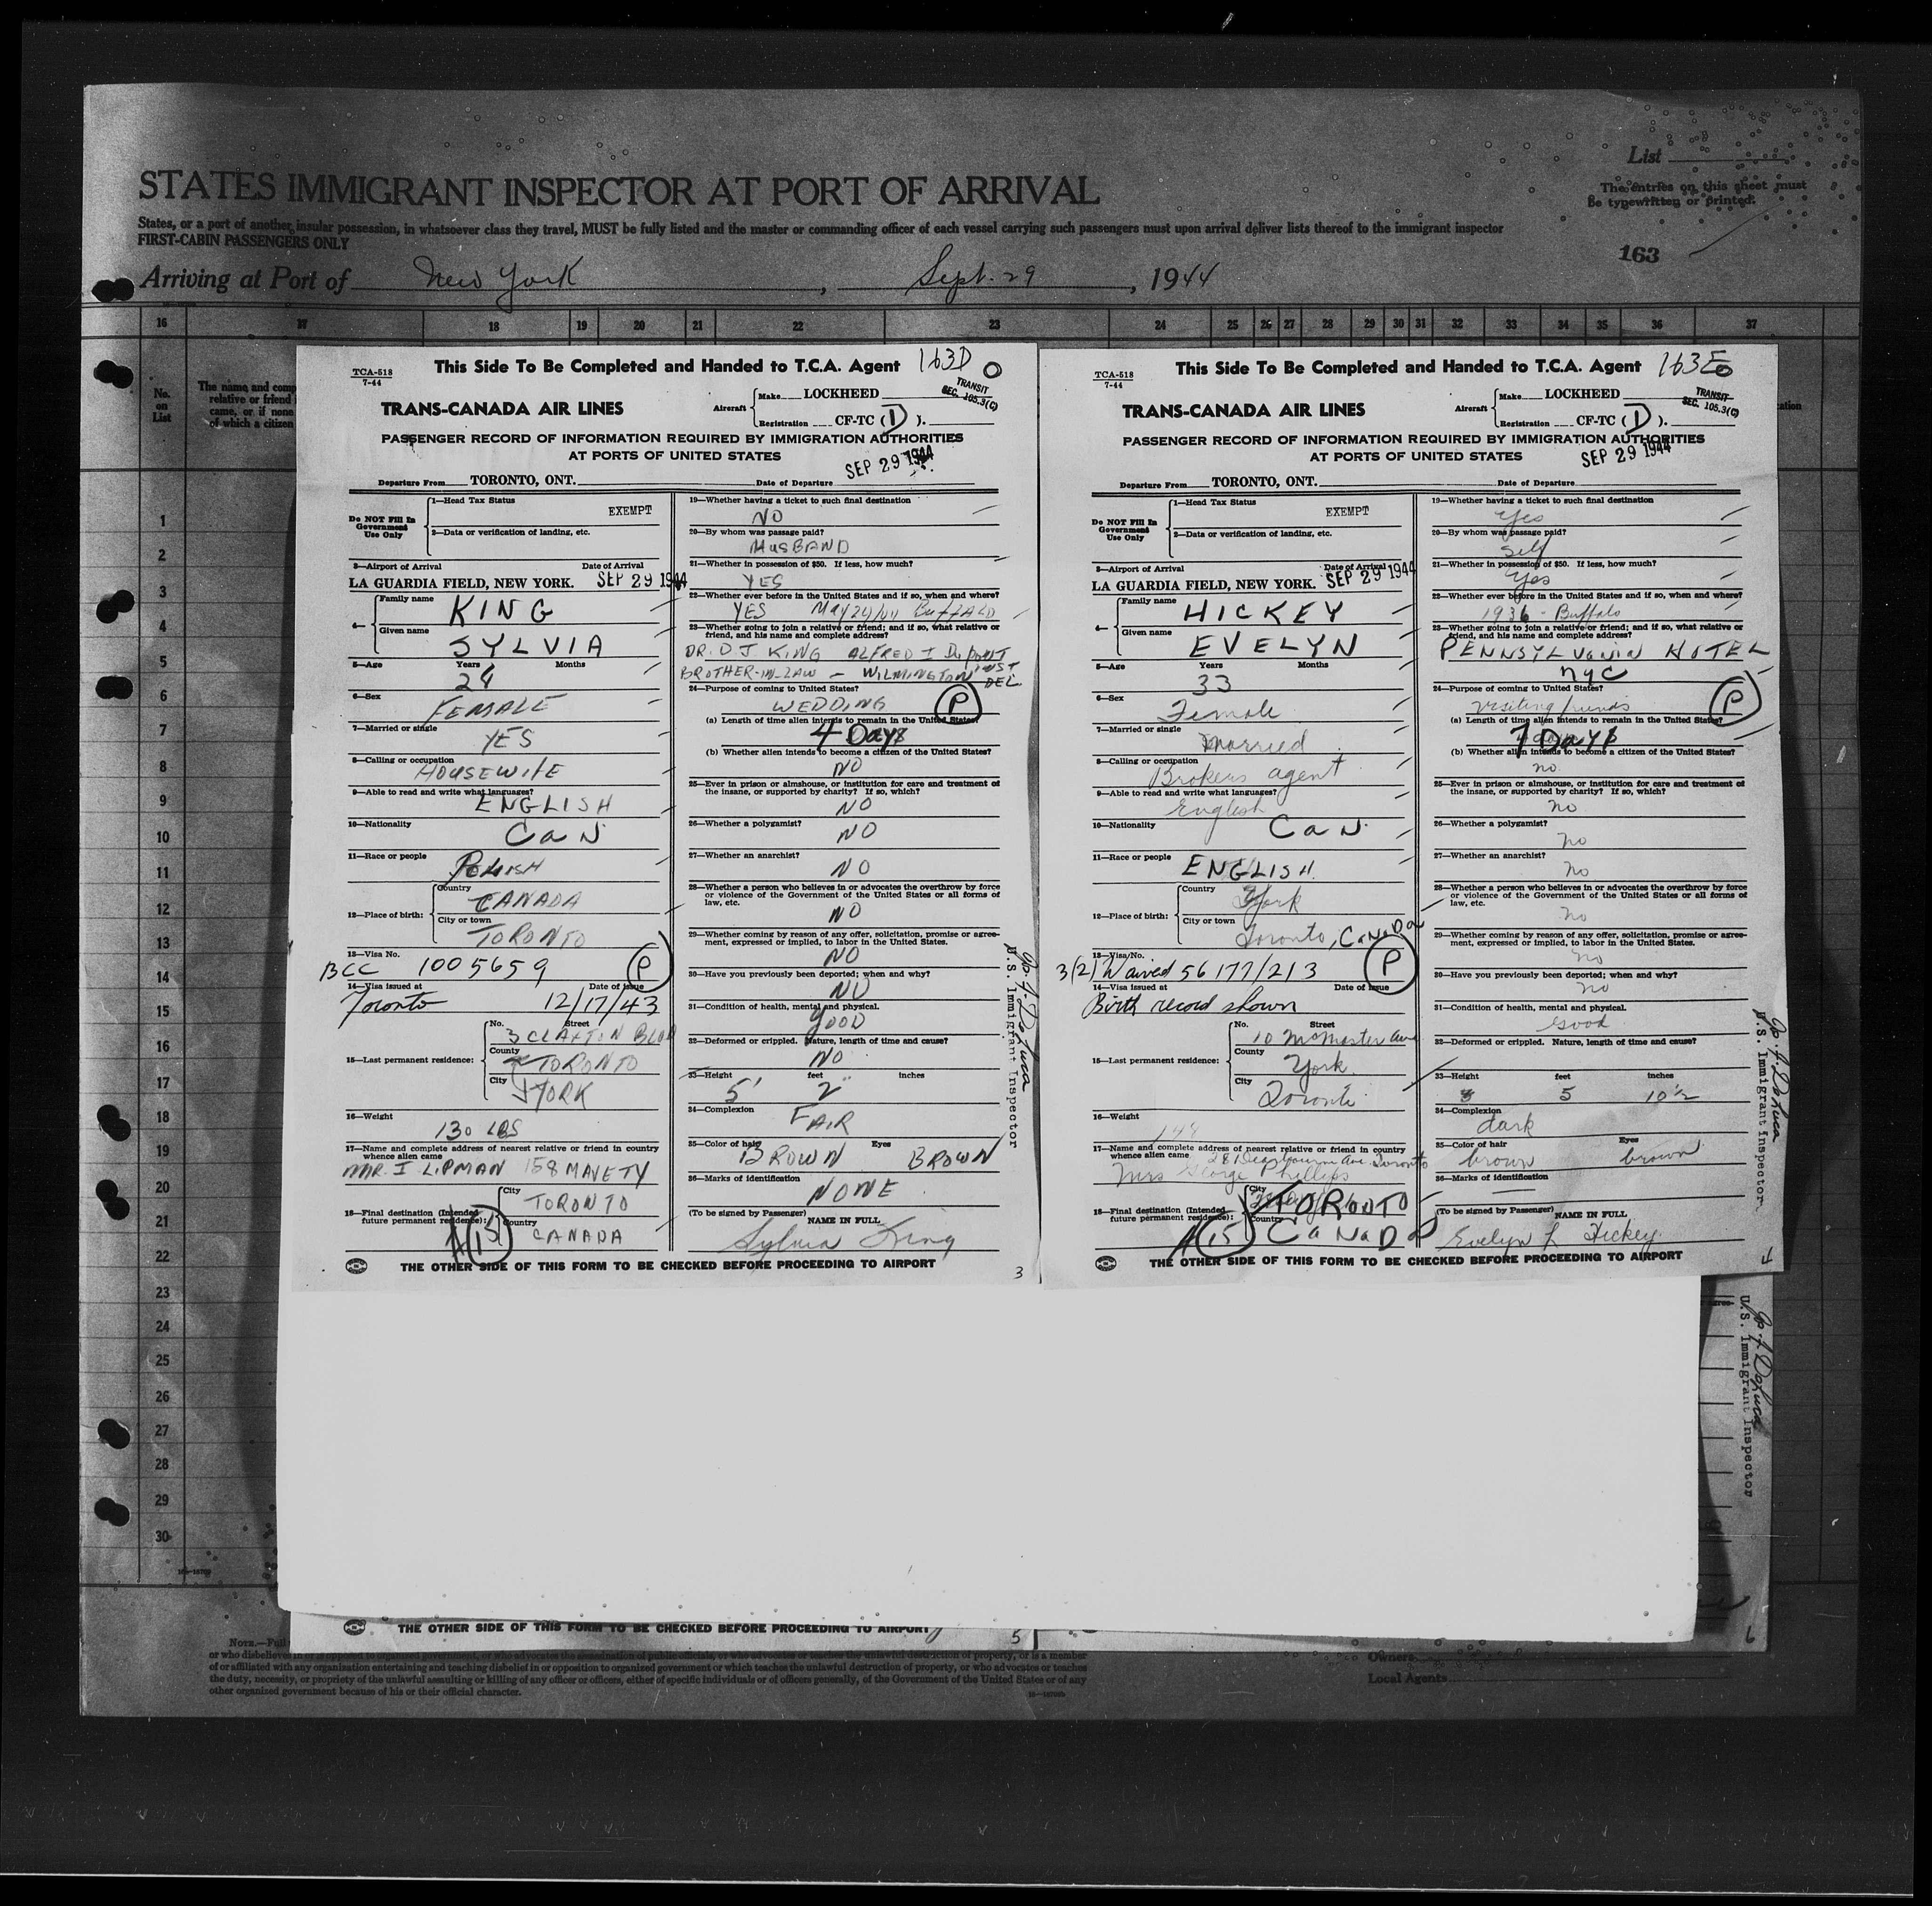 List
The entries on this sheet must
Be typewritten or printed.
STATES IMMIGRANT INSPECTOR AT PORT OF ARRIVAL
States, or a part of another insular possession, in whatsoever class they travel, MUST be fully listed and the master or commanding officer of each vessel carrying such passengers must upon arrival deliver lists thereof to the immigrant inspector
FIRST-CABIN PASSENGERS ONLY
163
Arriving at Port of New York, Sept. 29, 1944
16 17 18 19 20 21 22 23 24 25 26 27 28 29 30 31 32 33 34 35 36 37
No.
on
List
The name and comp
relative or friend
came, or if none
of which a citizen
1
2
3
4
5
6
7
8
9
10
11
12
13
14
15
16
17
18
19
20
21
22
23
24
25
26
27
28
29
30
This Side To Be Completed and Handed to T.C.A. Agent 163D O
TCA-518
7-44
TRANSIT
SEC. 105.3(C)
TRANS-CANADA AIR LINES
Aircraft
Make LOCKHEED
Registration CF-TC (D).
PASSENGER RECORD OF INFORMATION REQUIRED BY IMMIGRATION AUTHORITIES
AT PORTS OF UNITED STATES
SEP 29 1944
Departure From TORONTO, ONT. Date of Departure
Do NOT Fill In
Government
Use Only
1—Head Tax Status
EXEMPT
2—Data or verification of landing, etc.
3—Airport of Arrival Date of Arrival
LA GUARDIA FIELD, NEW YORK. SEP 29 1944
4—
Family name
KING
Given name
SYLVIA
5—Age Years Months
24
6—Sex
FEMALE
7—Married or single
YES
8—Calling or occupation
HOUSEWIFE
9—Able to read and write what languages?
ENGLISH
10—Nationality
CaN
11—Race or people
POLISH
12—Place of birth:
Country
CANADA
City or town
TORONTO
13—Visa No.
BCC 1005659 P
14—Visa issued at Date of issue
Toronto 12/17/43
15—Last permanent residence:
No. Street
3 CLAXTON BLVD
County
TORONTO
City
YORK
16—Weight
130 LBS
17—Name and complete address of nearest relative or friend in country
whence alien came
MR. I LIPMAN 158 MAVETY
18—Final destination (Intended
future permanent residence):
City
TORONTO
Country
CANADA
15
19—Whether having a ticket to such final destination
NO
20—By whom was passage paid?
HUSBAND
21—Whether in possession of $50. If less, how much?
YES
22—Whether ever before in the United States and if so, when and where?
YES May 24/44 BUFFALO
23—Whether going to join a relative or friend; and if so, what relative or
friend, and his name and complete address?
DR. D J KING ALFRED I DuPONT
INST
BROTHER-IN-LAW — WILMINGTON DEL.
24—Purpose of coming to United States?
WEDDING P
(a) Length of time alien intends to remain in the United States?
4 Days
(b) Whether alien intends to become a citizen of the United States?
NO
25—Ever in prison or almshouse, or institution for care and treatment of
the insane, or supported by charity? If so, which?
NO
26—Whether a polygamist?
NO
27—Whether an anarchist?
NO
28—Whether a person who believes in or advocates the overthrow by force
or violence of the Government of the United States or all forms of
law, etc.
NO
29—Whether coming by reason of any offer, solicitation, promise or agree-
ment, expressed or implied, to labor in the United States.
NO
30—Have you previously been deported; when and why?
NO
31—Condition of health, mental and physical.
GOOD
32—Deformed or crippled. Nature, length of time and cause?
NO
33—Height feet inches
5' 2"
34—Complexion
FAIR
35—Color of hair Eyes
BROWN BROWN
36—Marks of identification
NONE
(To be signed by Passenger) NAME IN FULL
Sylvia King
THE OTHER SIDE OF THIS FORM TO BE CHECKED BEFORE PROCEEDING TO AIRPORT
3
U.S. Immigrant Inspector
This Side To Be Completed and Handed to T.C.A. Agent 163E
TCA-518
7-44
TRANSIT
SEC. 105.3(C)
TRANS-CANADA AIR LINES
Aircraft
Make LOCKHEED
Registration CF-TC (D).
PASSENGER RECORD OF INFORMATION REQUIRED BY IMMIGRATION AUTHORITIES
AT PORTS OF UNITED STATES
SEP 29 1944
Departure From TORONTO, ONT. Date of Departure
Do NOT Fill In
Government
Use Only
1—Head Tax Status
EXEMPT
2—Data or verification of landing, etc.
3—Airport of Arrival Date of Arrival
LA GUARDIA FIELD, NEW YORK. SEP 29 1944
4—
Family name
HICKEY
Given name
EVELYN
5—Age Years Months
33
6—Sex
Female
7—Married or single
Married
8—Calling or occupation
Brokers agent
9—Able to read and write what languages?
English
10—Nationality
CaN
11—Race or people
ENGLISH
12—Place of birth:
Country
York
City or town
Toronto, CaNaDa
13—Visa No.
3(2) Waived 56177/213 P
14—Visa issued at Date of issue
Birth record shown
15—Last permanent residence:
No. Street
10 McMaster Ave
County
York
City
Toronto
16—Weight
144
17—Name and complete address of nearest relative or friend in country
whence alien came
Ave. Toronto
Mrs George Phillips
18—Final destination (Intended
future permanent residence):
City
TORONTO
Country
CaNaDa
15
19—Whether having a ticket to such final destination
Yes
20—By whom was passage paid?
Self
21—Whether in possession of $50. If less, how much?
Yes
22—Whether ever before in the United States and if so, when and where?
1936 - Buffalo
23—Whether going to join a relative or friend; and if so, what relative or
friend, and his name and complete address?
PENNSYLVANIA HOTEL
NYC
24—Purpose of coming to United States?
Visiting friends P
(a) Length of time alien intends to remain in the United States?
7 Days
(b) Whether alien intends to become a citizen of the United States?
no
25—Ever in prison or almshouse, or institution for care and treatment of
the insane, or supported by charity? If so, which?
no
26—Whether a polygamist?
no
27—Whether an anarchist?
no
28—Whether a person who believes in or advocates the overthrow by force
or violence of the Government of the United States or all forms of
law, etc.
no
29—Whether coming by reason of any offer, solicitation, promise or agree-
ment, expressed or implied, to labor in the United States.
no
30—Have you previously been deported; when and why?
no
31—Condition of health, mental and physical.
Good
32—Deformed or crippled. Nature, length of time and cause?
33—Height feet inches
5 10½
34—Complexion
dark
35—Color of hair Eyes
brown brown
36—Marks of identification
—
(To be signed by Passenger) NAME IN FULL
Evelyn L Hickey
THE OTHER SIDE OF THIS FORM TO BE CHECKED BEFORE PROCEEDING TO AIRPORT
4
U.S. Immigrant Inspector
U.S. Immigrant Inspector
THE OTHER SIDE OF THIS FORM TO BE CHECKED BEFORE PROCEEDING TO AIRPORT
5
6
NOTE.—Full
or who disbelieves in or is opposed to organized government, or who advocates the assassination of public officials, or who advocates or teaches the unlawful destruction of property, or is a member
of or affiliated with any organization entertaining and teaching disbelief in or opposition to organized government or which teaches the unlawful destruction of property, or who advocates or teaches
the duty, necessity, or propriety of the unlawful assaulting or killing of any officer or officers, either of specific individuals or of officers generally, of the Government of the United States or of any
other organized government because of his or their official character.
Owners
Local Agents